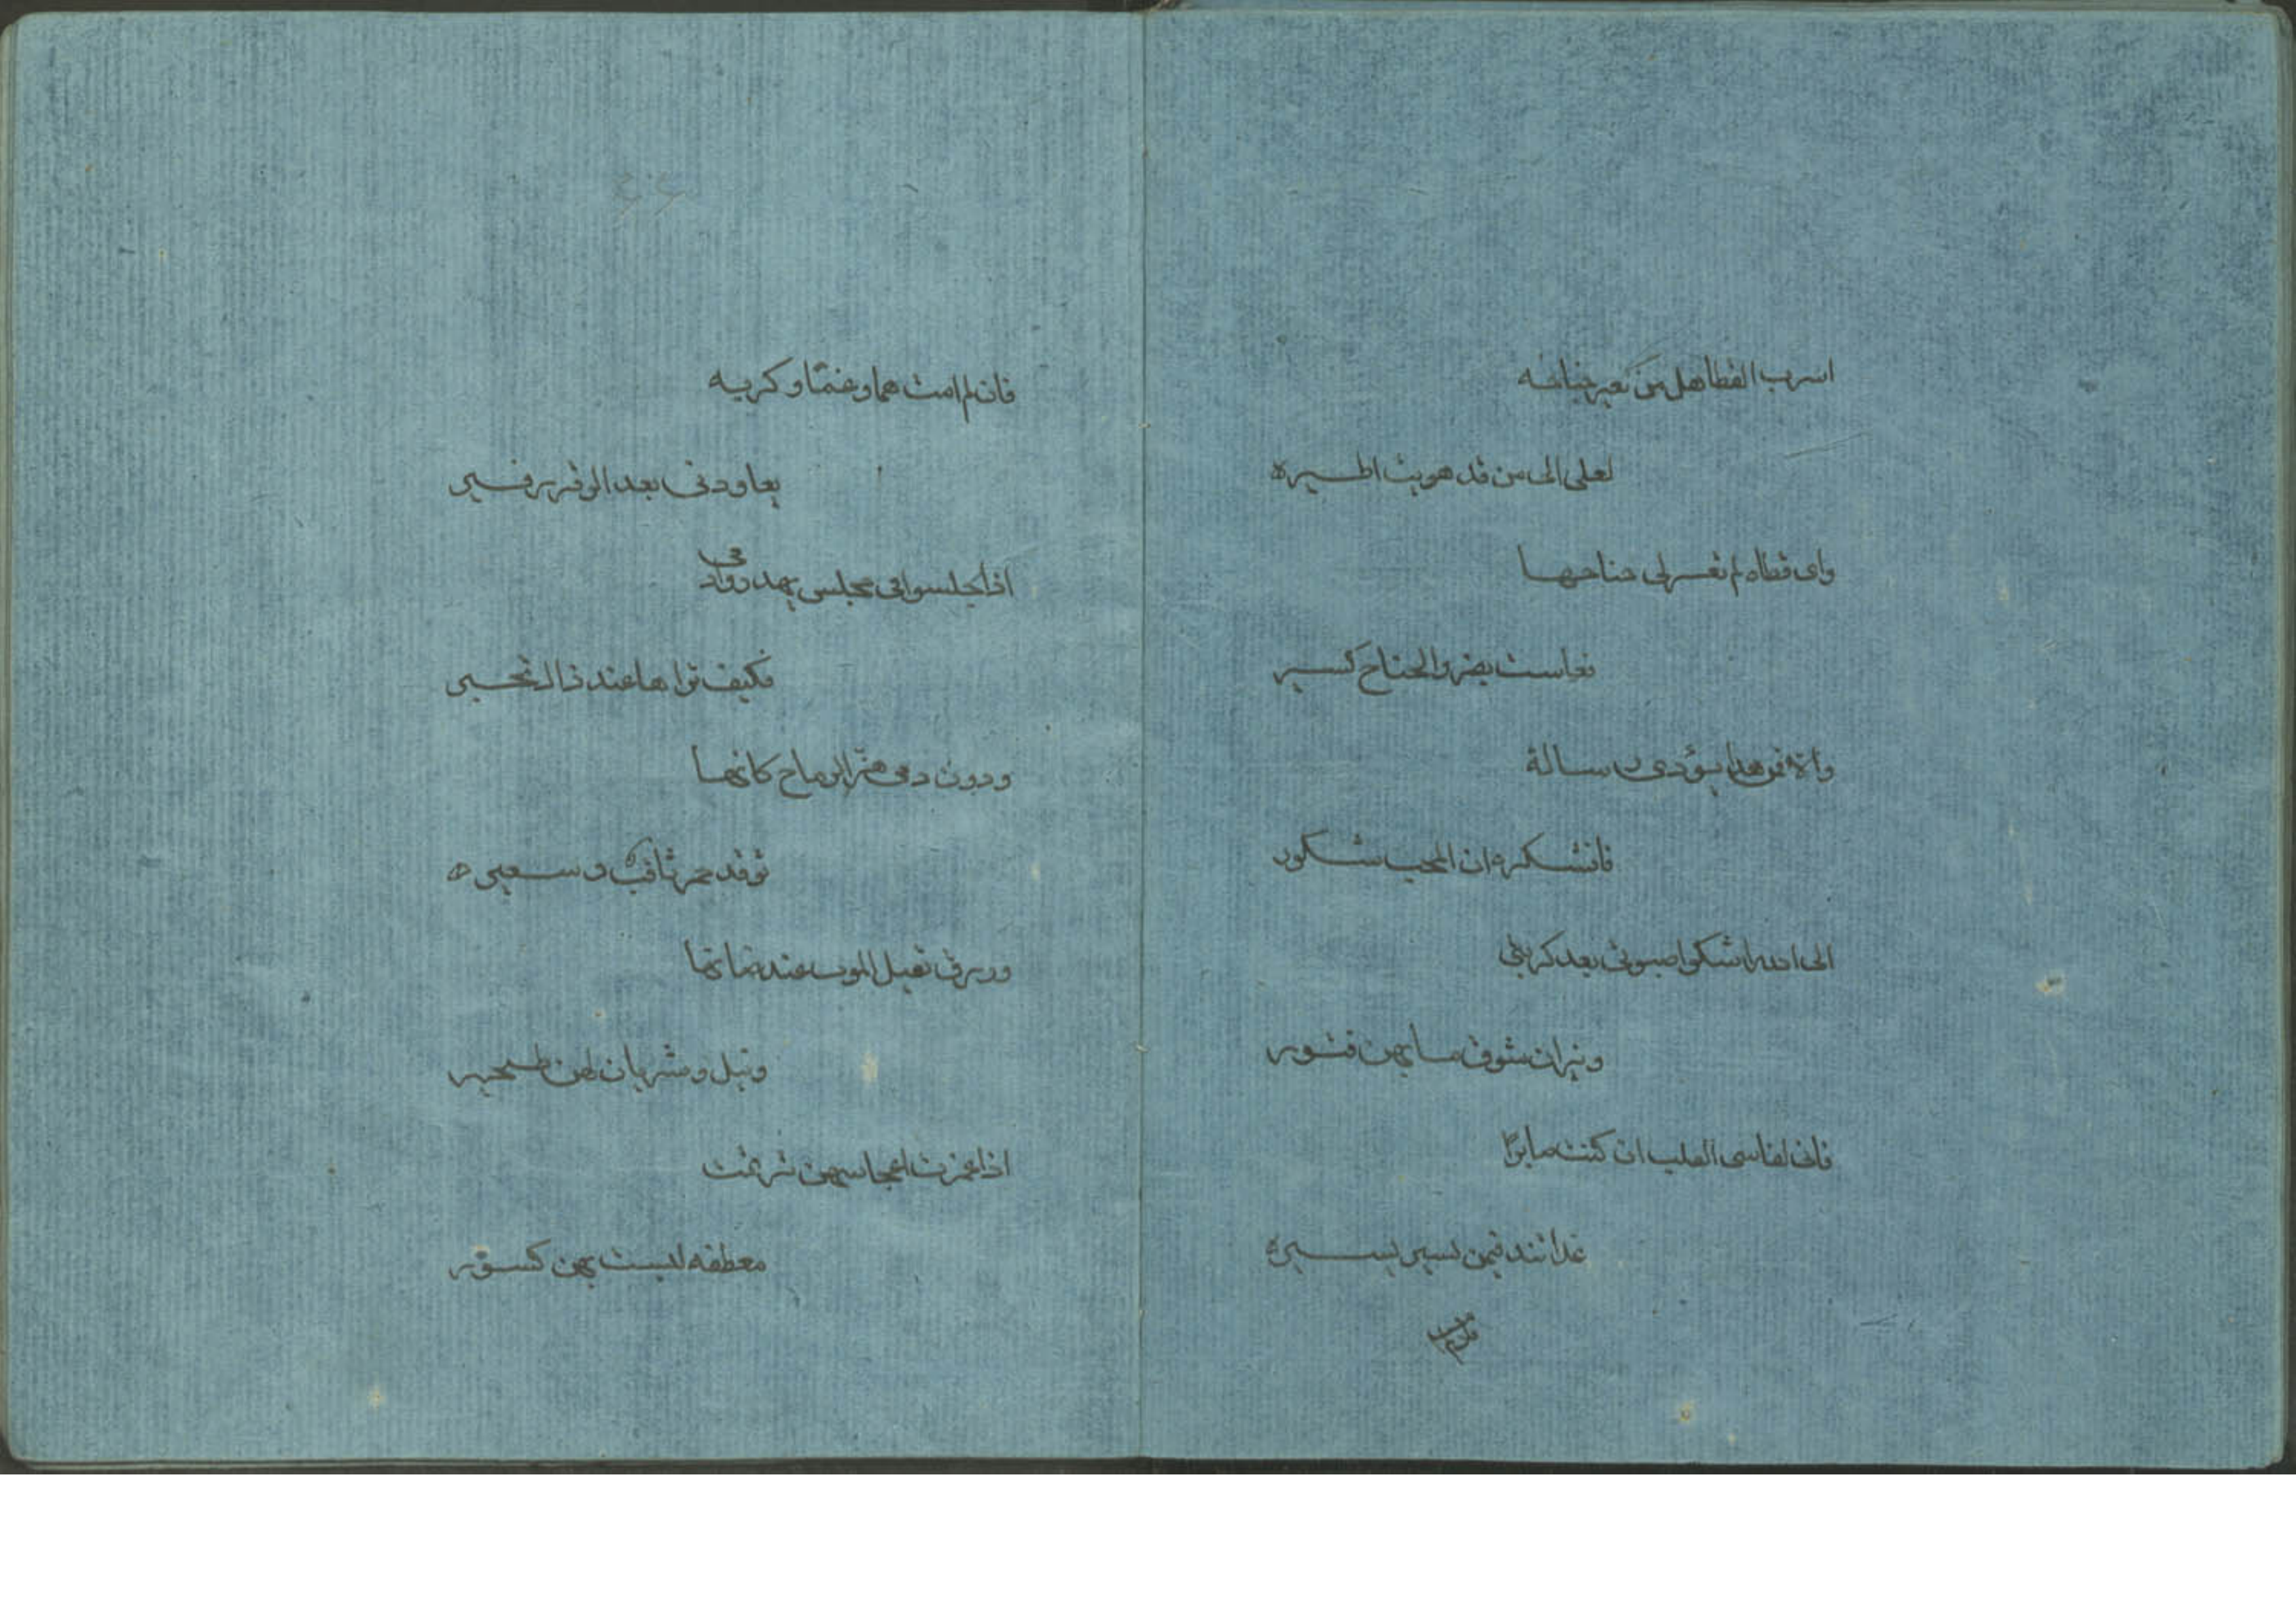 اسرب القطا هل من معير جناحه
لعلى الى من قد هويت اطيره
واى قطاه لم تعرلى جناحها
فعاشت بضر والجناح كسير
والا فمن هذا يؤدى رسالة
فاشكره ان المحب شكور
الى الله اشكوا صبوتى بعد كربتى
ونيران شوقى ما بهن فتور
فانى لقاسى القلب ان كنت صابرًا
غداة غد فيمن يسير يسيره
فان لم امت هما وغمًا وكربه
يعاودنى بعد الزفير زفير
اذا جلسوا فى مجلس يهدروا دمى
فكيف تراها عند ذاك تجير
ودون دمى هز الرماح كانها
توقد جمر ثاقب وسعيره
وزرق مقيل الموت عند ظباتها
ونبل وسمر ما لهن مجير
اذا غمزت اعجاسهن ترنمت
معطفه ليست بهن كسور